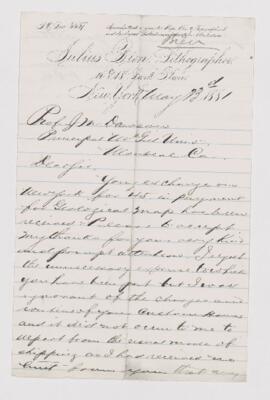 Julius Bien, Lithographer
16 & 18 Park Place
New York May 23d 1881
Prof J. W. Dawson
Principal McGill Univ.
Montreal Ca.
Dear Sir
Your exchange on
New York for 45 in payment
for Geological Maps has been
received. Please to accept
my thanks for your very kind
and prompt attention. I regret
the unnecessary expense to which
you have been put but I was
ignorant of the charges and
routine of your Custom House
and it did not occur to me to
depart from the usual mode of
shipping and had received no